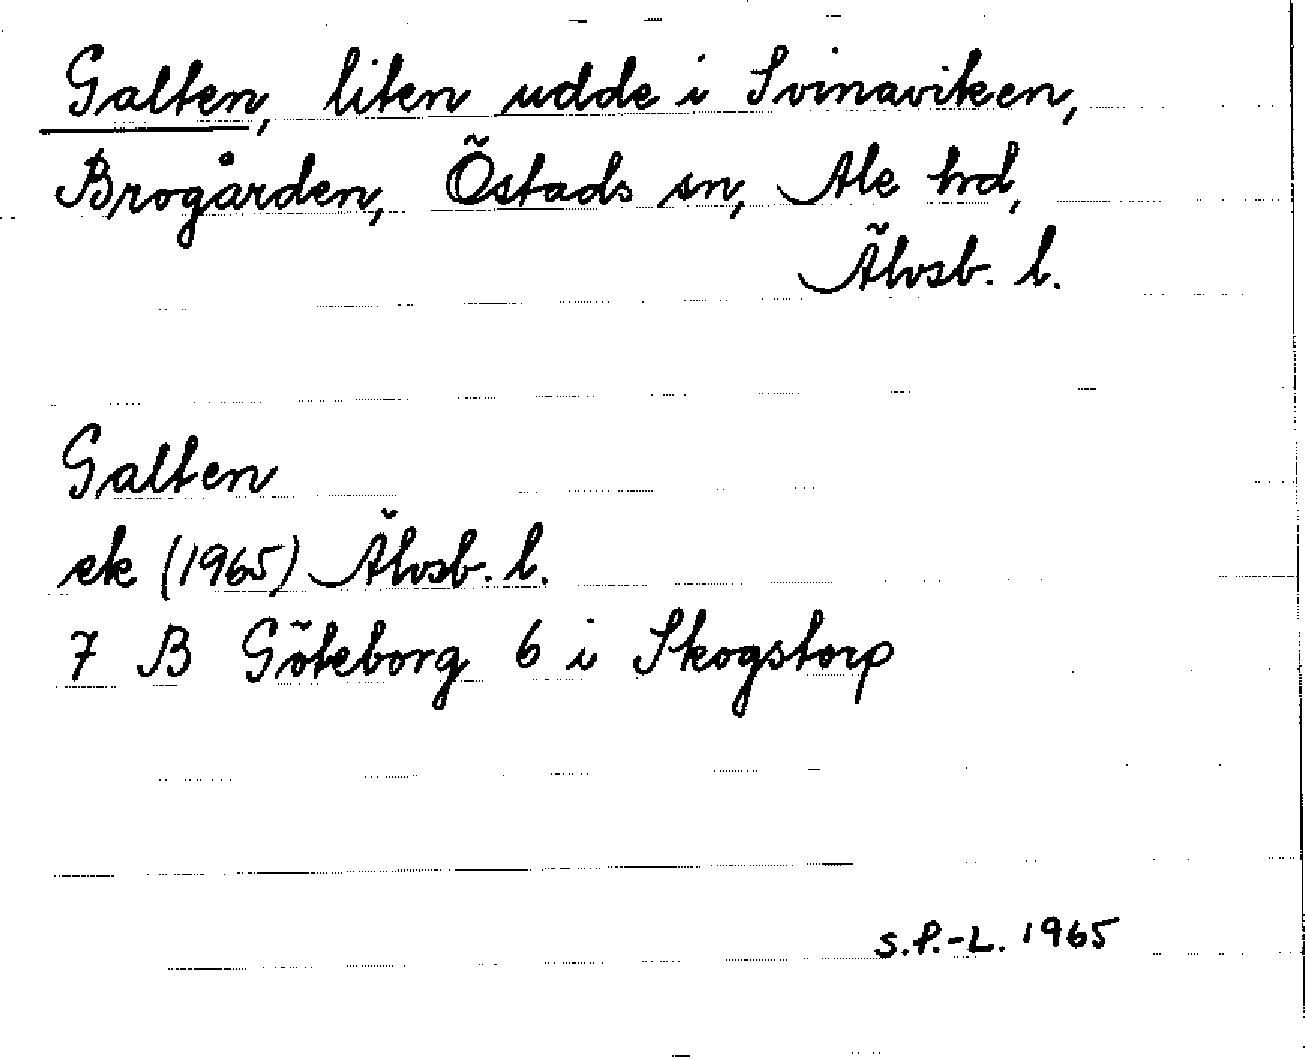 Galten, liten udde i Svinaviken,
Brogården, Östads sn, Ale hrd,
Älvsb. l.
Galten
ek (1965) Älvsb. l.
7 B Göteborg 6 i Skogstorp
S.P.-L. 1965